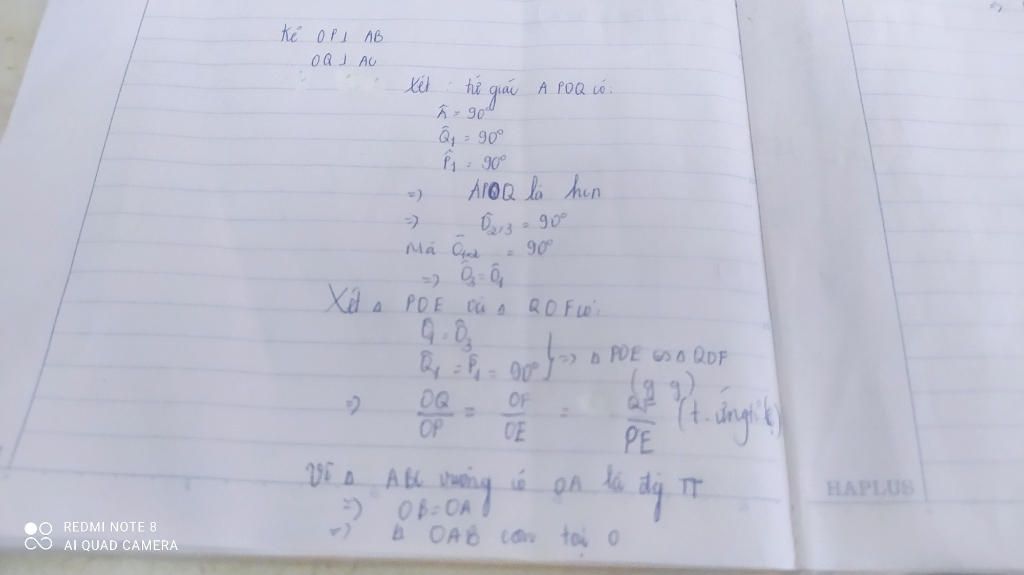 Kẻ OP⊥ AB
OQ ⊥ AC
Xét : tứ giác APOQ có:
Â = 90°
Q̂₁ = 90°
P̂₁ = 90°
=> APOQ là hcn
=> Ô₂,₃ = 90°
Mà Ô₁₊₂ = 90°
=> Ô₃ = Ô₁
Xét △ POE và △ QOF có:
Ô₁ = Ô₃
Q̂₁ = P̂₁ = 90° } => △ POE ∽ △ QOF
(g g)
=> OQ/OP = OF/OE = QF/PE (t. ứng tỉ lệ)
Vì △ ABC vuông có OA là đg TT
=> OB = OA
=> △ OAB cân tại O
HAPLUS
REDMI NOTE 8
AI QUAD CAMERA